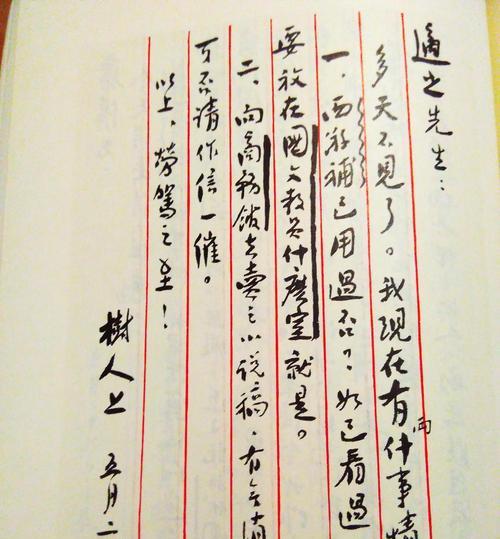 適之先生：
多天不見了。我現在有兩件事情
一，西游補已用過否？如已看過
要放在國文教員什麽室就是。
二、向商務館去賣之小說稿，有無消
可否請作信一催。
以上，勞駕之至！
樹人上 五月二